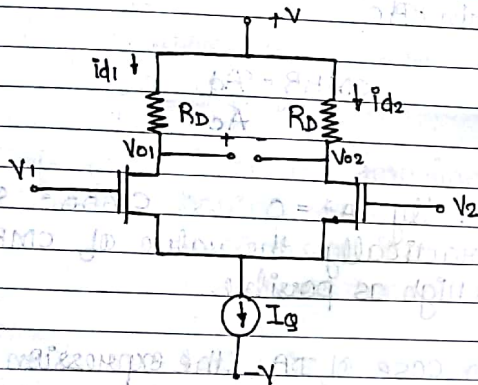 +V
id1 ↓
↓ id2
RD
RD
V01
+
-
V02
V1
V2
IQ
-V